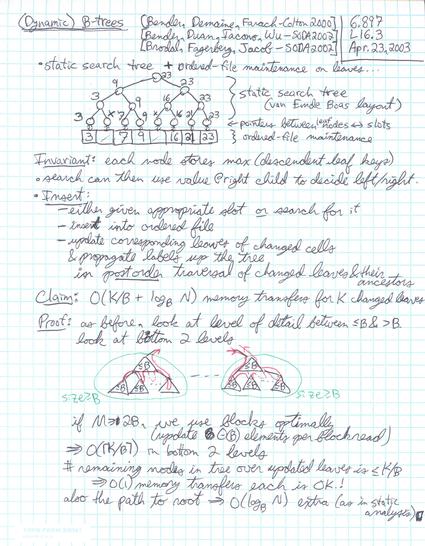 (Dynamic) B-trees [Bender, Demaine, Farach-Colton 2000] 6.897
[Bender, Duan, Iacono, Wu - SODA 2002] L16.3
[Brodal, Fagerberg, Jacob - SODA 2002] Apr. 23, 2003
• static search tree + ordered-file maintenance on leaves...
23
9 23
3 9 16 23
3 7 9 16 21 23
static search tree
(van Emde Boas layout)
← pointers between leaf nodes ↔ slots
3 7 9 16 21 23 } ordered-file maintenance
Invariant: each node stores max (descendent leaf keys)
• search can then use value @ right child to decide left/right.
• Insert:
- either given appropriate slot or search for it
- insert into ordered file
- update corresponding leaves of changed cells
& propagate labels up the tree,
in postorder traversal of changed leaves & their
ancestors
Claim: O(K/B + log_B N) memory transfers for K changed leaves
Proof: as before, look at level of detail between ≤B & >B.
look at bottom 2 levels
≤B ≤B
≤B ≤B ≤B ≤B
size≥B size≥B
if M ≥ 2B, we use blocks optimally
(update Θ(B) elements per block read)
⇒ O(⌈K/B⌉) in bottom 2 levels
# remaining nodes in tree over updated leaves is ≤ K/B
⇒ O(1) memory transfers each is OK!
also the path to root ⇒ O(log_B N) extra (as in static
analyses)